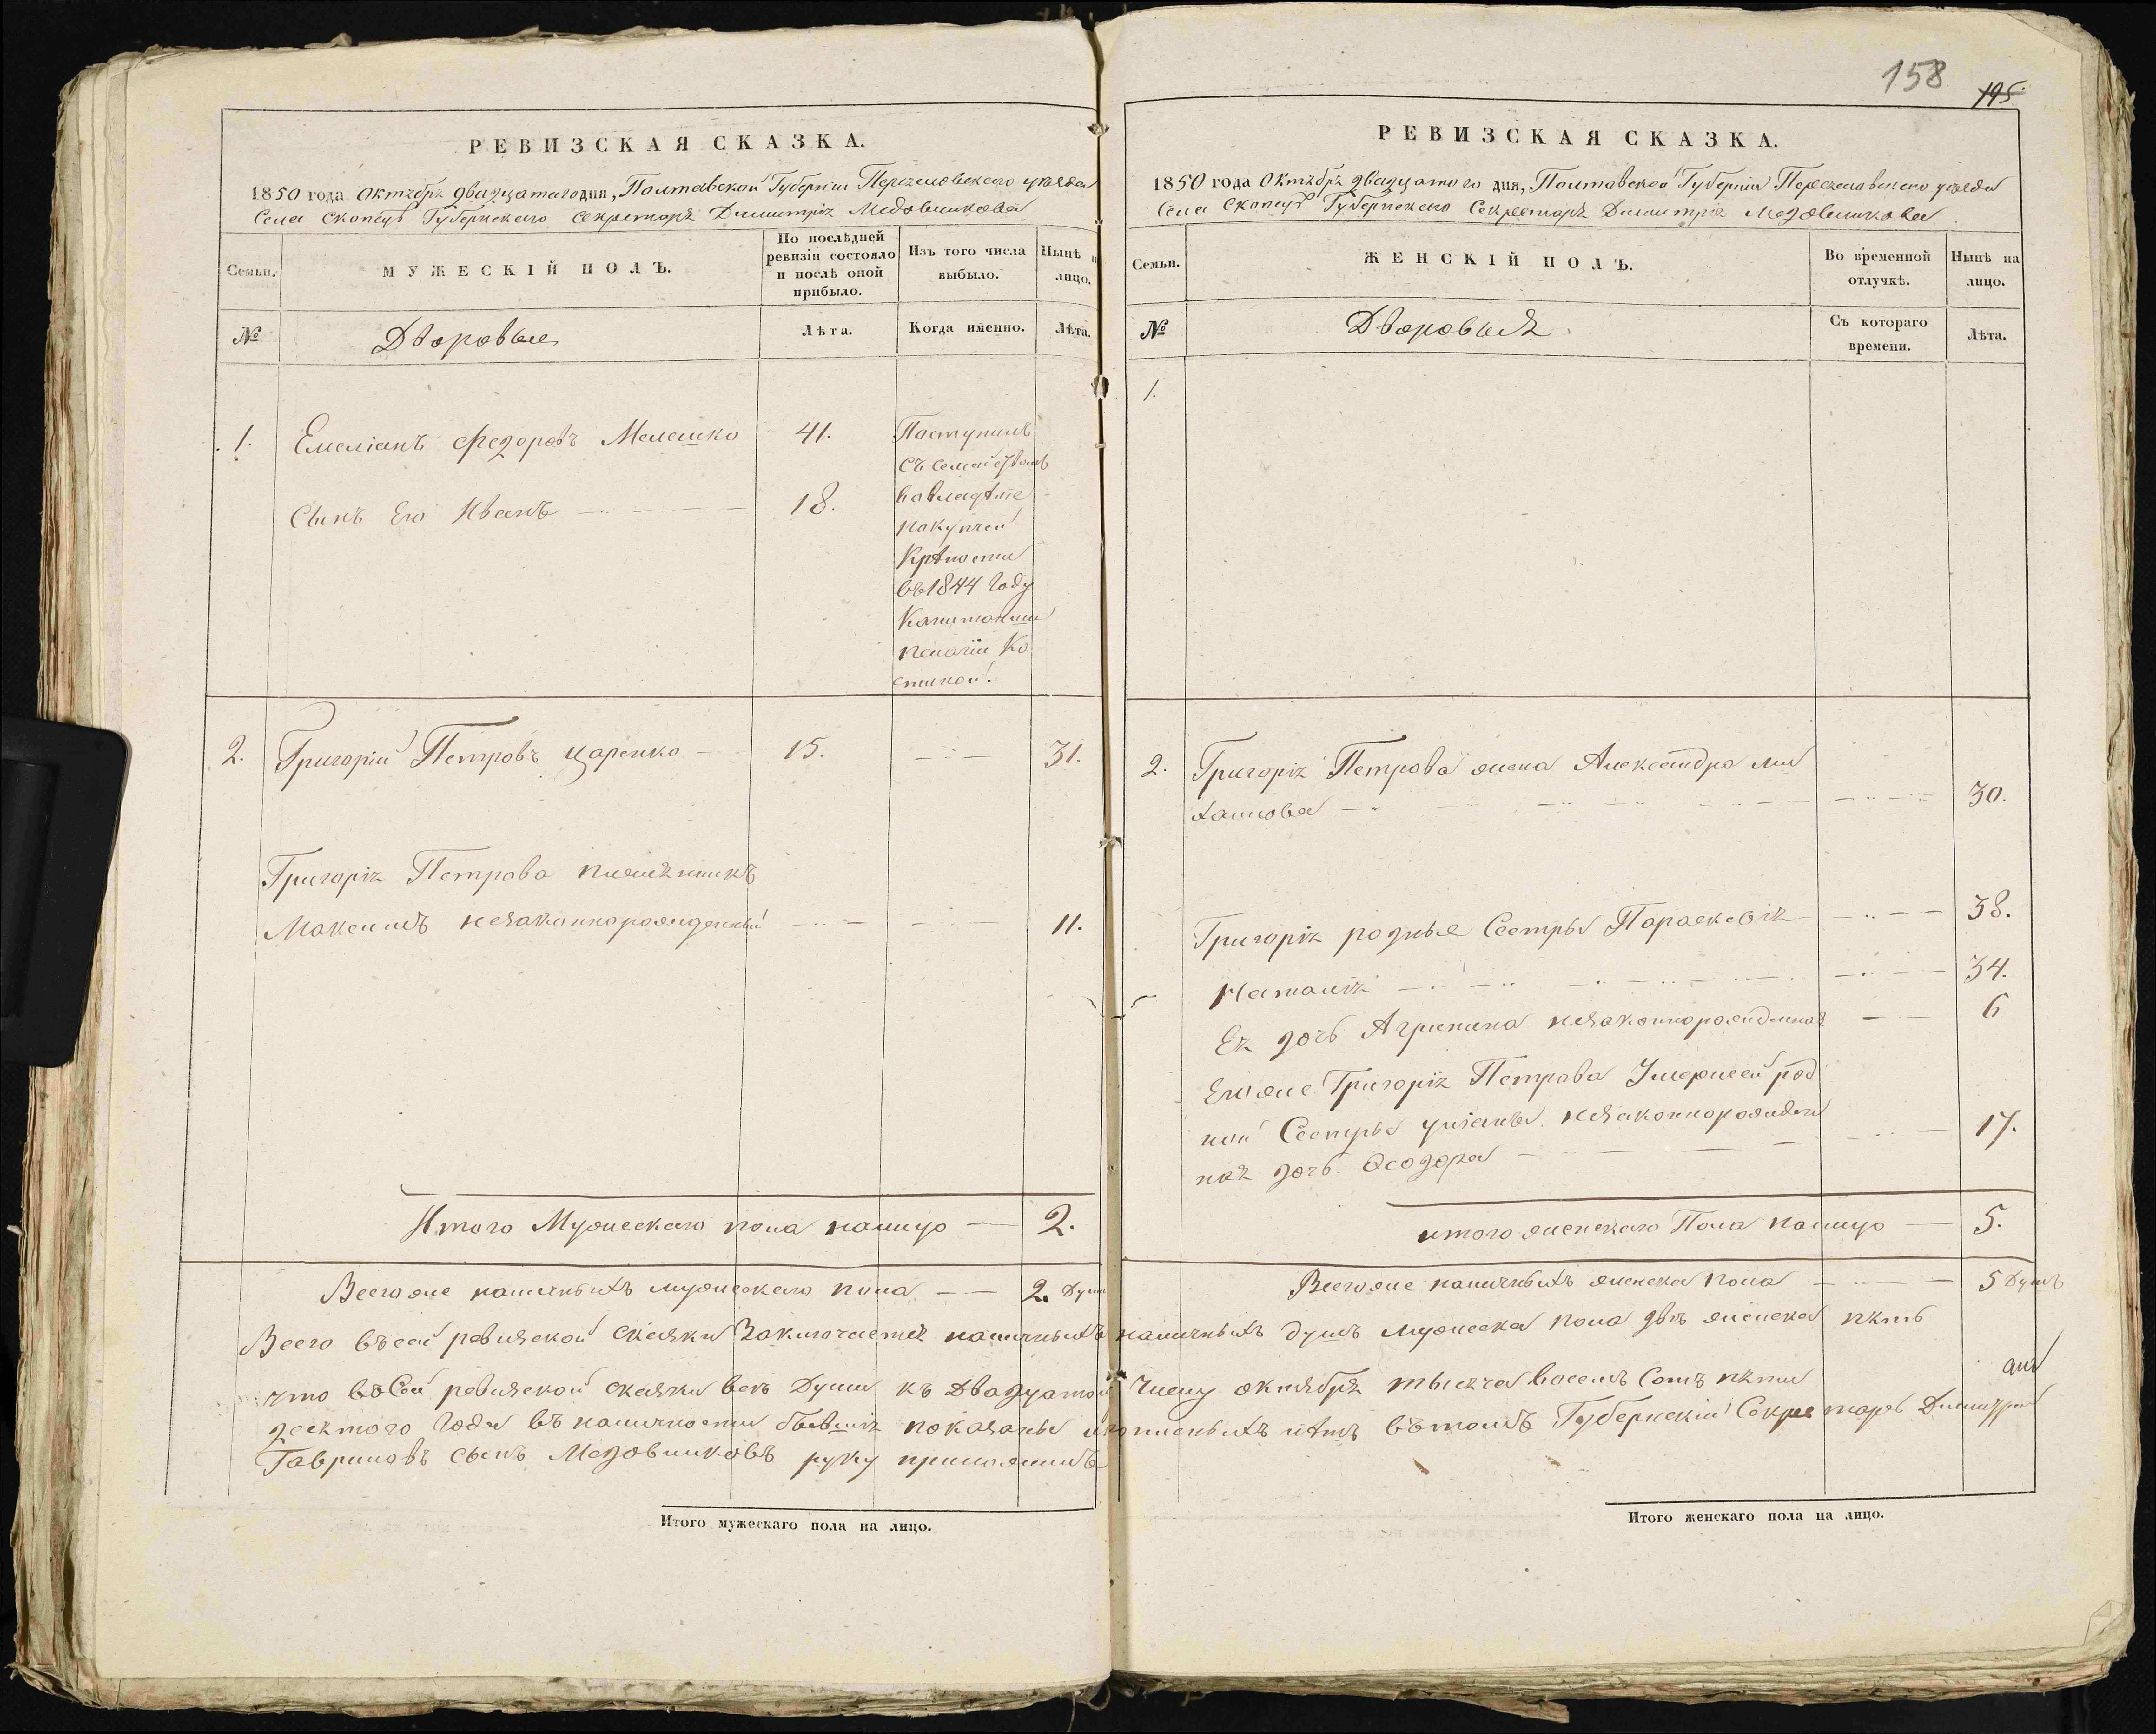 158
195.
РЕВИЗСКАЯ СКАЗКА.
1850 года Октября двадцатаго дня, Полтавской Губерніи Переяловскаго уезда
Села Скопцув Губернскаго Секретаря Димитрія Медовникова
Семьи.
МУЖЕСКІЙ ПОЛЪ.
По послѣдней
ревизіи состояло
и послѣ оной
прибыло.
Изъ того числа
выбыло.
Нынѣ н
лицо.
№
Дворовые
Лѣта.
Когда именно.
Лѣта.
1. Емеліанъ Федоровъ Мелешко 41.
Сынъ Его Иванъ 18.
Поступилъ
съ семействомъ
во владѣніе
покупчей
Крѣпости
въ 1844 Году
Капитанши
пелагіи Ко
стиной.
2. Григорій Петровъ Царенко 15. 31.
Григорія Петрова племянникъ
Максимъ незаконнорожденный 11.
Итого Мужескаго пола налицо 2.
Всего же наличныхъ мужескаго пола 2. Души
РЕВИЗСКАЯ СКАЗКА.
1850 года Октября двадцатого дня, Полтавской Губерніи Переяловскаго уезда
Села Скопцув Губернскаго Секретаря Димитрія Медовникова
Семьи.
ЖЕНСКІЙ ПОЛЪ.
Во временной
отлучкѣ.
Нынѣ на
лицо.
№
Дворовыя
Съ котораго
времени.
Лѣта.
1.
2. Григорія Петрова жена Александра ми
хайлова 30.
Григорія родные Сестры Параскевія 38.
Наталія 34.
Ея дочь Агрипина незаконнорожденная 6
Его же Григорія Петрова Умершей род
ной Сестры уліаны незаконнорожден
ная дочь Феодора 17.
итого женскаго Пола налицо 5.
Всего же наличныхъ женска пола 5 Душъ
Всего въ сей ревизской сказки Заключается наличныхъ наличныхъ душъ мужеска пола двѣ женска пять
что в Сей ревизской сказки всѣ Души к Двадцатому Числу октября тысяча восемъ Сотъ пяти
десятого Года въ наличности бывшія показаны и прописныхъ нѣтъ въ томъ Губернскій Секретарь Димитрій
Гавриловъ сынъ Медовниковъ руку приложилъ
Итого мужескаго пола на лицо.
Итого женскаго пола на лицо.